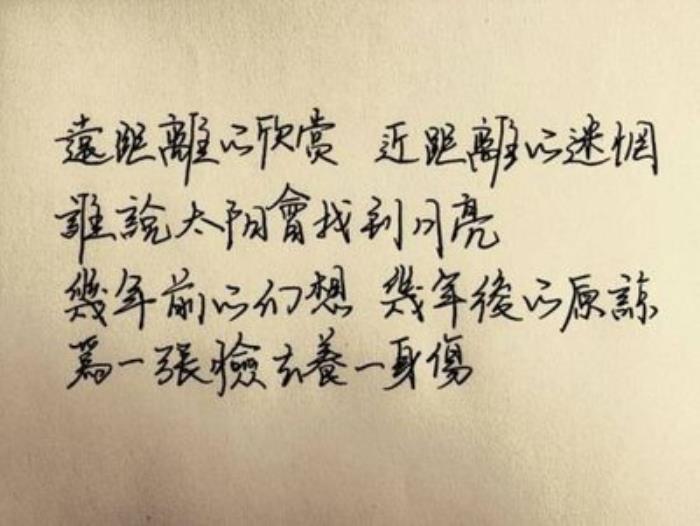 遠距離以欣赏 近距離以迷惘
誰說太阳會找到月亮
幾年前以幻想 幾年後以原諒
為一張臉去養一身傷